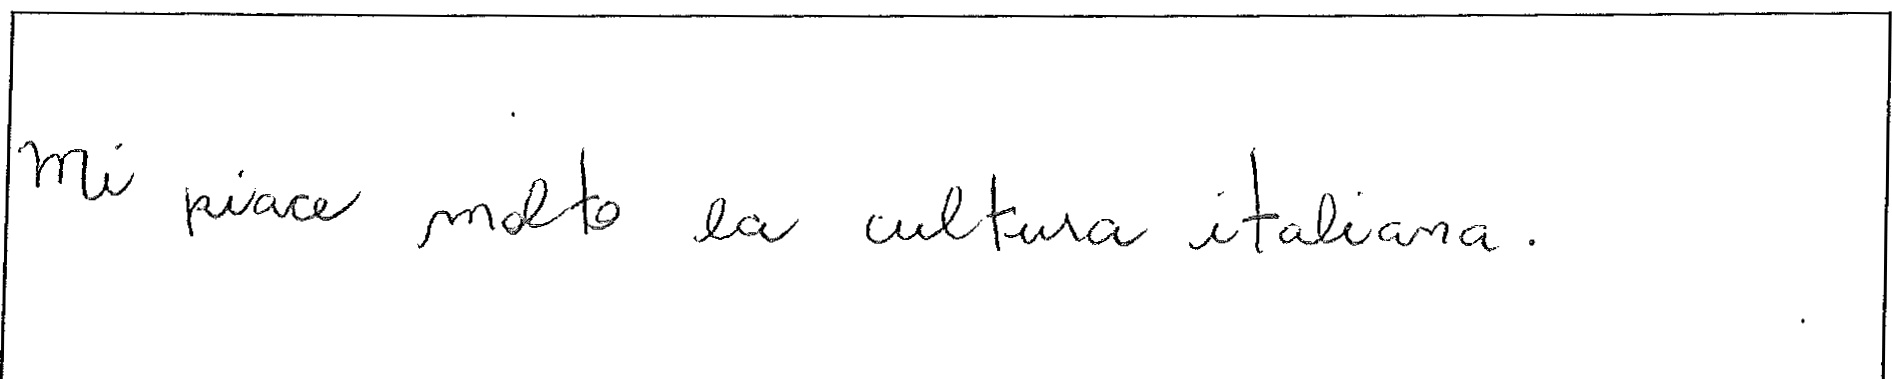 Mi piace molto la cultura italiana.